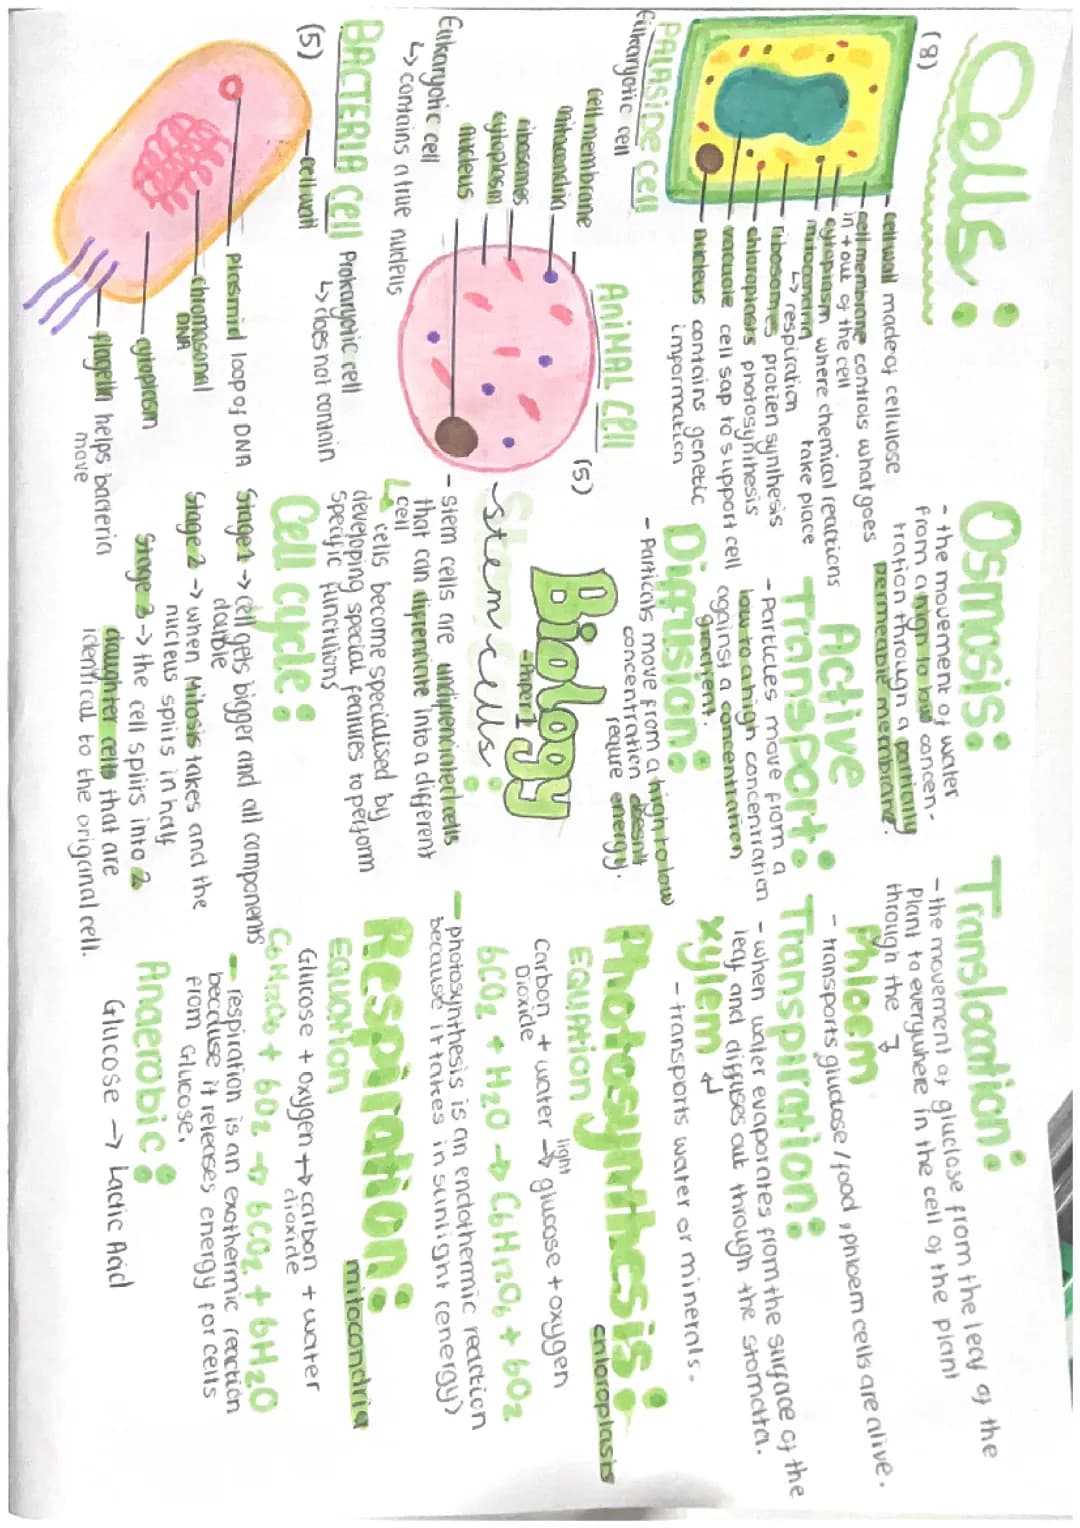 Cells:
(8)
cell wall made of cellulose
cell membrane controls what goes
in + out of the cell
cytoplasm where chemical reactions
take place
mitocondria
↳ respiration
ribosomes protien synthesis
chloroplasts photosynthesis
vacuole cell sap to support cell
nucleus contains genetic
information
PALASIDE CELL
Eukaryotic cell
ANIMAL CELL
(5)
cell membrane
mitocondria
ribosomes
cytoplasm
nucleus
Eukaryotic cell
↳ contains a true nucleus
BACTERIA CELL
(5)
Prokaryotic cell
↳ does not contain
cell wall
plasmid loop of DNA
chromosonal
DNA
cytoplasm
flagella helps bacteria
move
Osmosis:
- the movement of water
from a high to low concen-
tration through a partially
permeable membrane.
Active
Transport:
- Particles move from a
low to a high concentration
against a concentration
gradient.
Diffusion:
- Particals move from a high to low
concentration doesn't
require energy.
Biology
- Paper 1
stem cells:
- stem cells are undifferenciated cells
that can differenciate into a different
cell
↳ cells become specialised by
developing special features to perform
specific functions
Cell cycle:
Stage 1 → cell gets bigger and all components
double
Stage 2 → when Mitosis takes and the
nucleus splits in half
Stage 3 → the cell splits into 2
daughter cells that are
identical to the origcinal cell.
Translocation:
- the movement of gluclose from the leaf of the
Plant to everywhere in the cell of the plant
through the ↴
Phloem
- transports gluclose / food, phloem cells are alive.
Transpiration:
- when water evaporates from the surface of the
leaf and diffuses out through the stomatta.
Xylem ↲
- transports water or minerals.
Photosynthesis:
chloroplasts
EQUATION
Carbon + water light→ glucose + oxygen
Dioxide
6CO2 + H2O → C6H12O6 + 6O2
- photosynthesis is an endothermic reaction
because it takes in sunlight (energy)
Respiration:
mitocondria
EQUATION
Glucose + oxygen → carbon + water
dioxide
C6H12O6 + 6O2 → 6CO2 + 6H2O
- respiration is an exothermic reaction
because it releases energy for cells
from Glucose.
Anaerobic:
Glucose → Lactic Acid